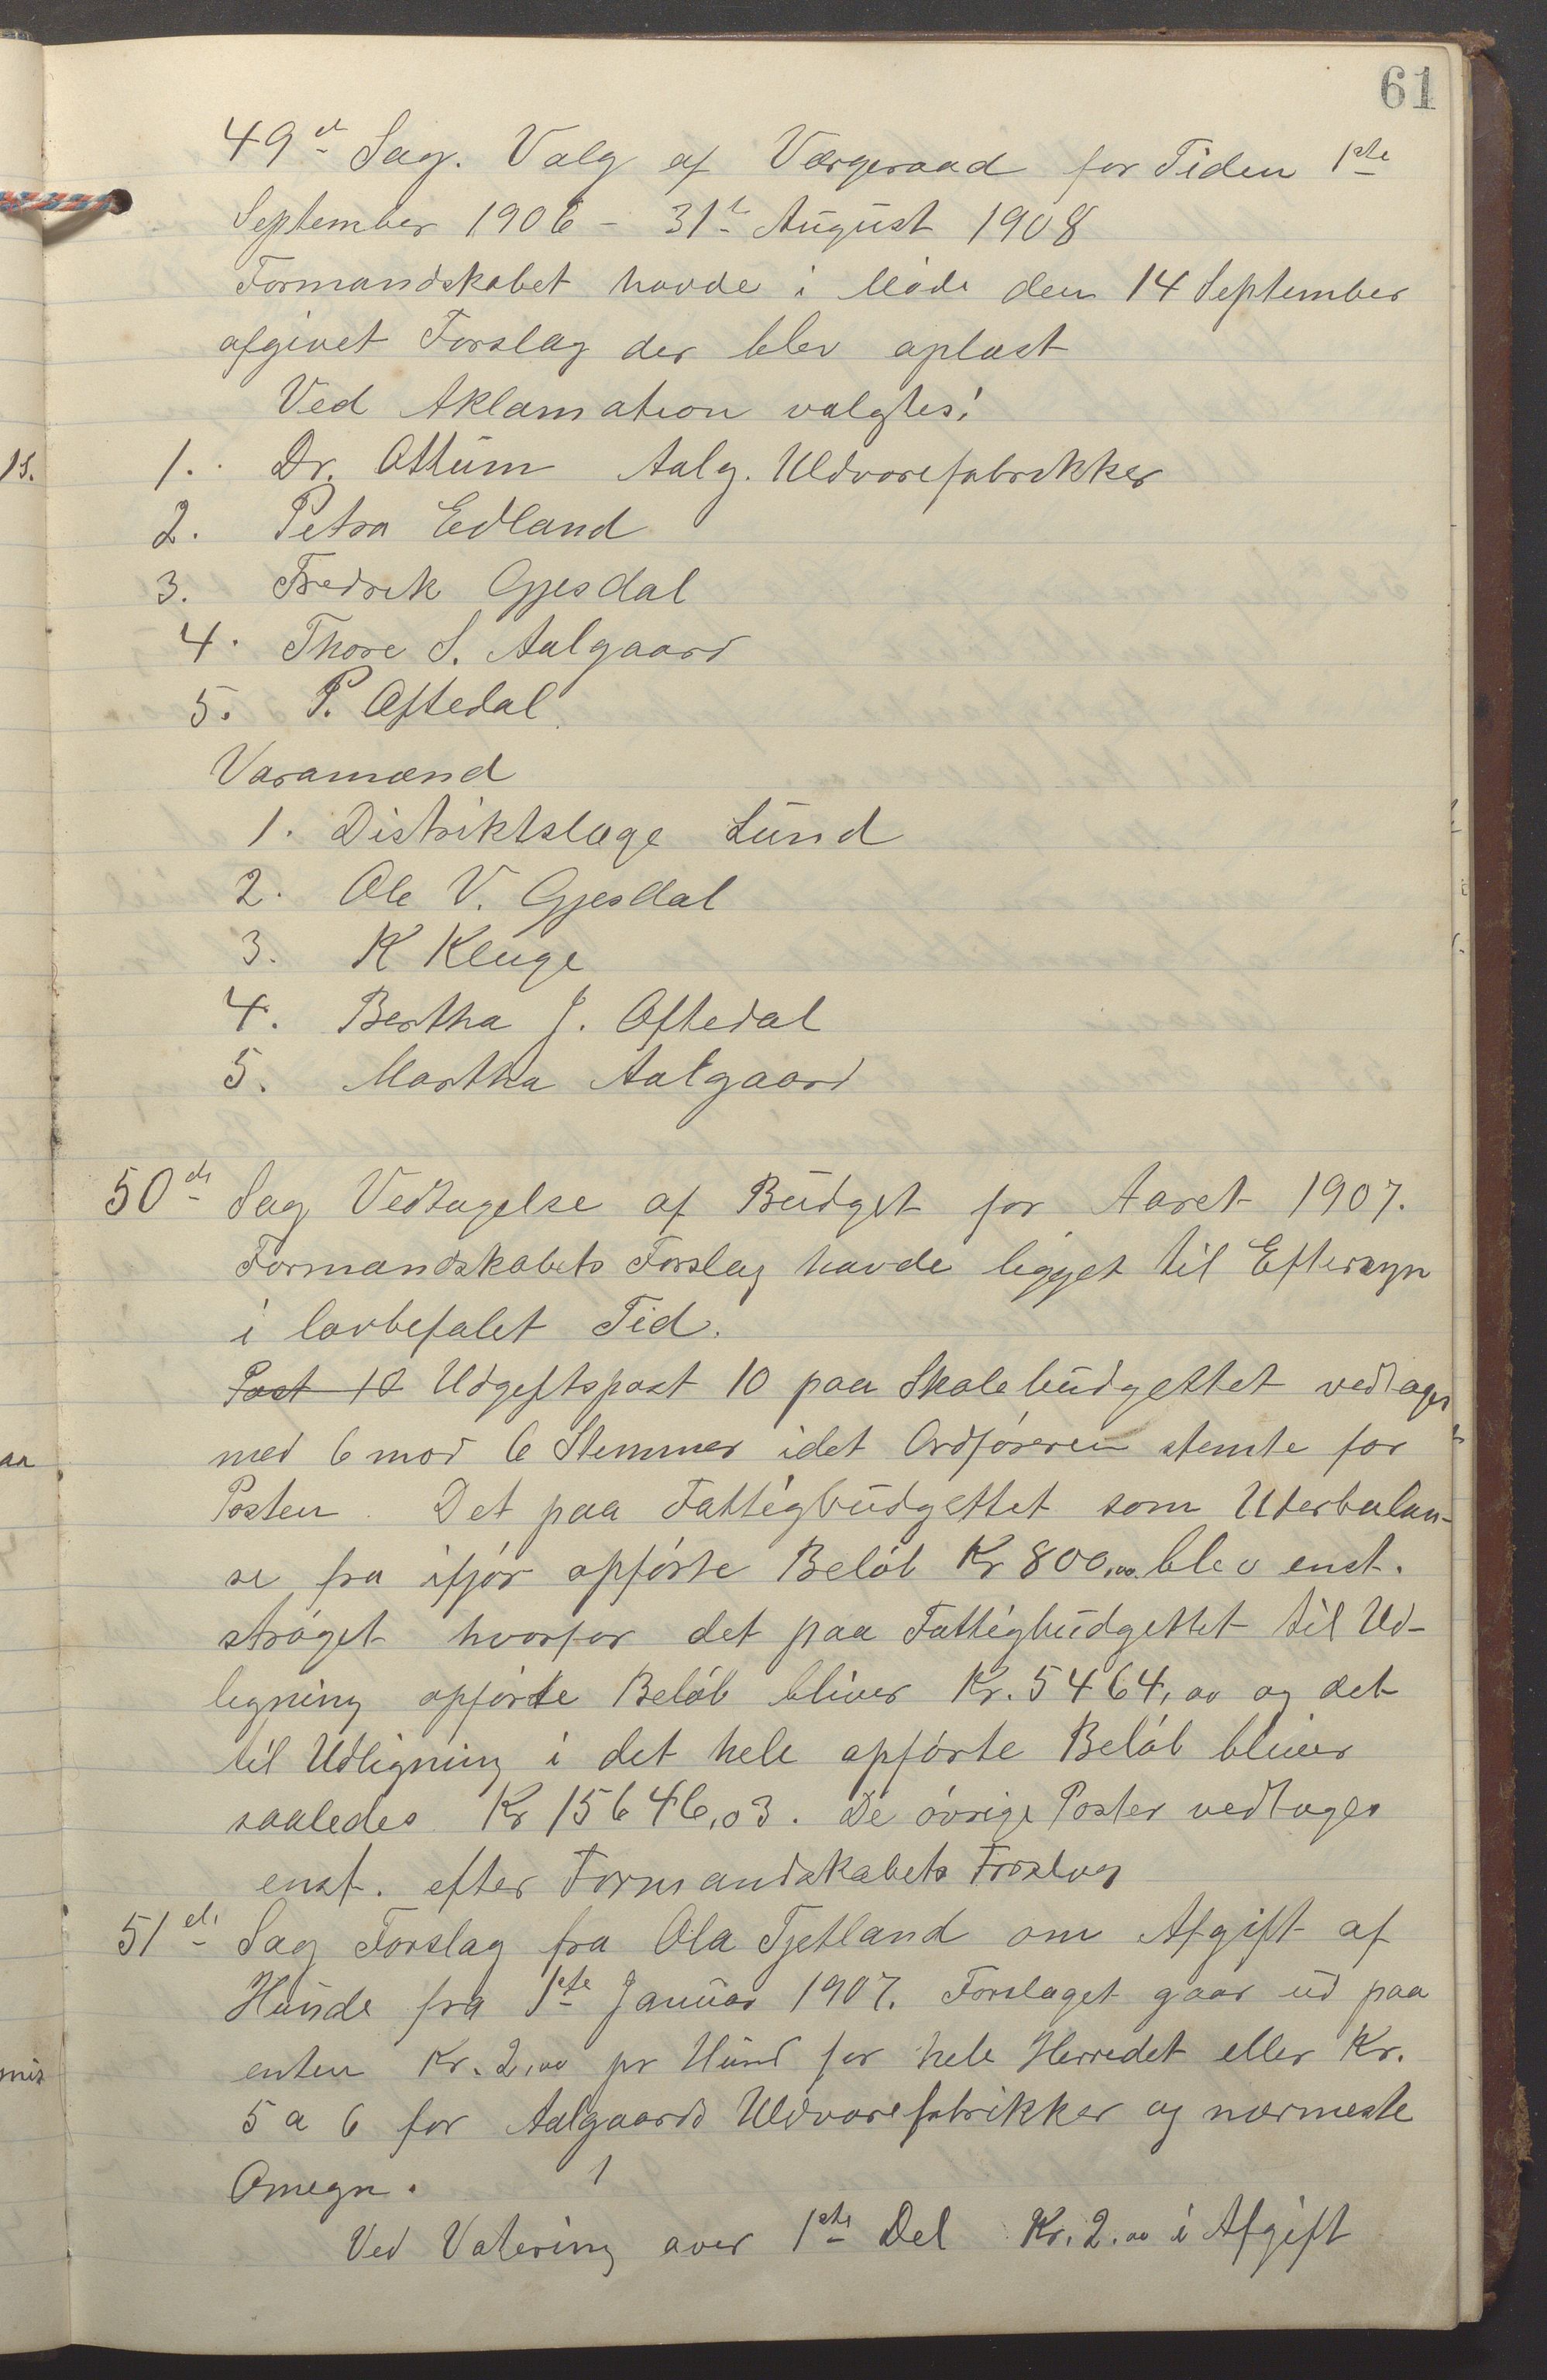 61
49de Sag. Valg af Værgeraad for Tiden 1ste
September 1906 - 31te August 1908
Formandskabet havde i Møde den 14 September
afgivet Forslag der blev oplæst
Ved Aklamation valgtes:
1. Dr. Ottum Aalg. Uldvarefabrikker
2. Petra Edland
3. Fredrik Gjesdal
4. Thore S. Aalgaard
5. P. Oftedal
Varamænd
1. Distriktslæge Lund
2. Ole V. Gjesdal
3. K Kluge
4. Bertha J. Oftedal
5. Martha Aalgaard
50de Sag Vedtagelse af Budget for Aaret 1907.
Formandskabets Forslag havde ligget til Eftersyn
i lovbefalet Tid.
Post 10 Udgiftspost 10 paa Skolebudgettet vedtages
med 6 mod 6 Stemmer idet Ordføreren stemte for
Posten. Det paa Fattigbudgettet som Uterbalan-
se fra ifjor opførte Beløb Kr 800,00 blev enst.
strøget hvorfor det paa Fattigbudgettet til Ud-
ligning opførte Beløb bliver Kr. 5464,00 og det
til Udligning i det hele opførte Beløb bliver
saaledes Kr 15646,03. De øvrige Poster vedtages
enst. efter Formandskabets Forslag
51de Sag Forslag fra Ola Tjetland om Afgift af
Hunde fra 1ste Januar 1907. Forslaget gaar ud paa
enten Kr. 2,00 pr Hund for hele Herredet eller Kr.
5 a 6 for Aalgaards Uldvarefabrikker og nærmeste
Omegn.
Ved Votering over 1ste Del Kr. 2.00 i Afgift